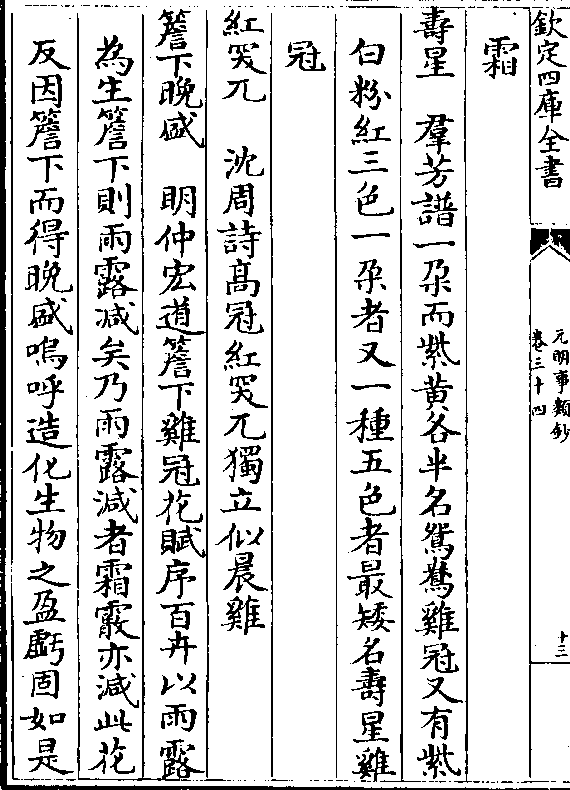 欽定四庫全書
元明事類鈔
卷三十四
十三
霜
壽星 羣芳譜一朶而紫黄各半名鴛鴦雞冠又有紫
白粉紅三色一朶者又一種五色者最矮名壽星雞
冠
紅突兀 沈周詩髙冠紅突兀獨立似晨雞
簷下晚盛 明仲宏道簷下雞冠花賦序百卉以雨露
為生簷下則雨露减矣乃雨露减者霜霰亦减此花
反因簷下而得晚盛嗚呼造化生物之盈虧固如是